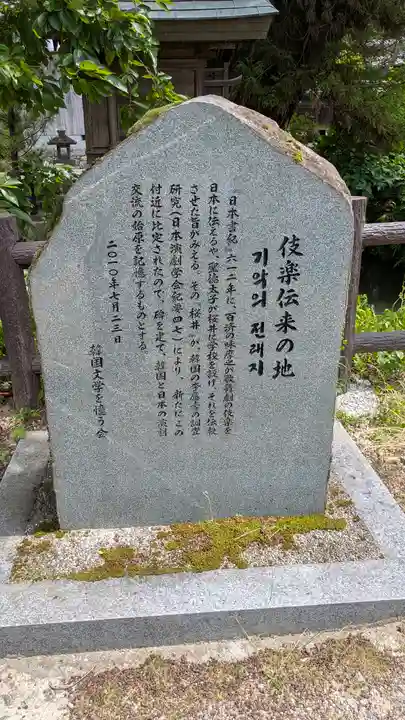 伎楽伝来の地
기악의 전래지
『日本書紀』六一二年に、百済の味摩之が歌舞劇の伎楽を
日本に伝えるや、聖徳太子が桜井に学校を設け、それを伝教
させた旨がみえる。その「桜井」が、韓国の李應寿の調査
研究（日本演劇学会紀要四七）により、新たにこの
付近に比定されたので、碑を建て、韓国と日本の演劇
交流の始原を記憶するものとする。
二〇一〇年七月二三日
韓国大学を憶う会